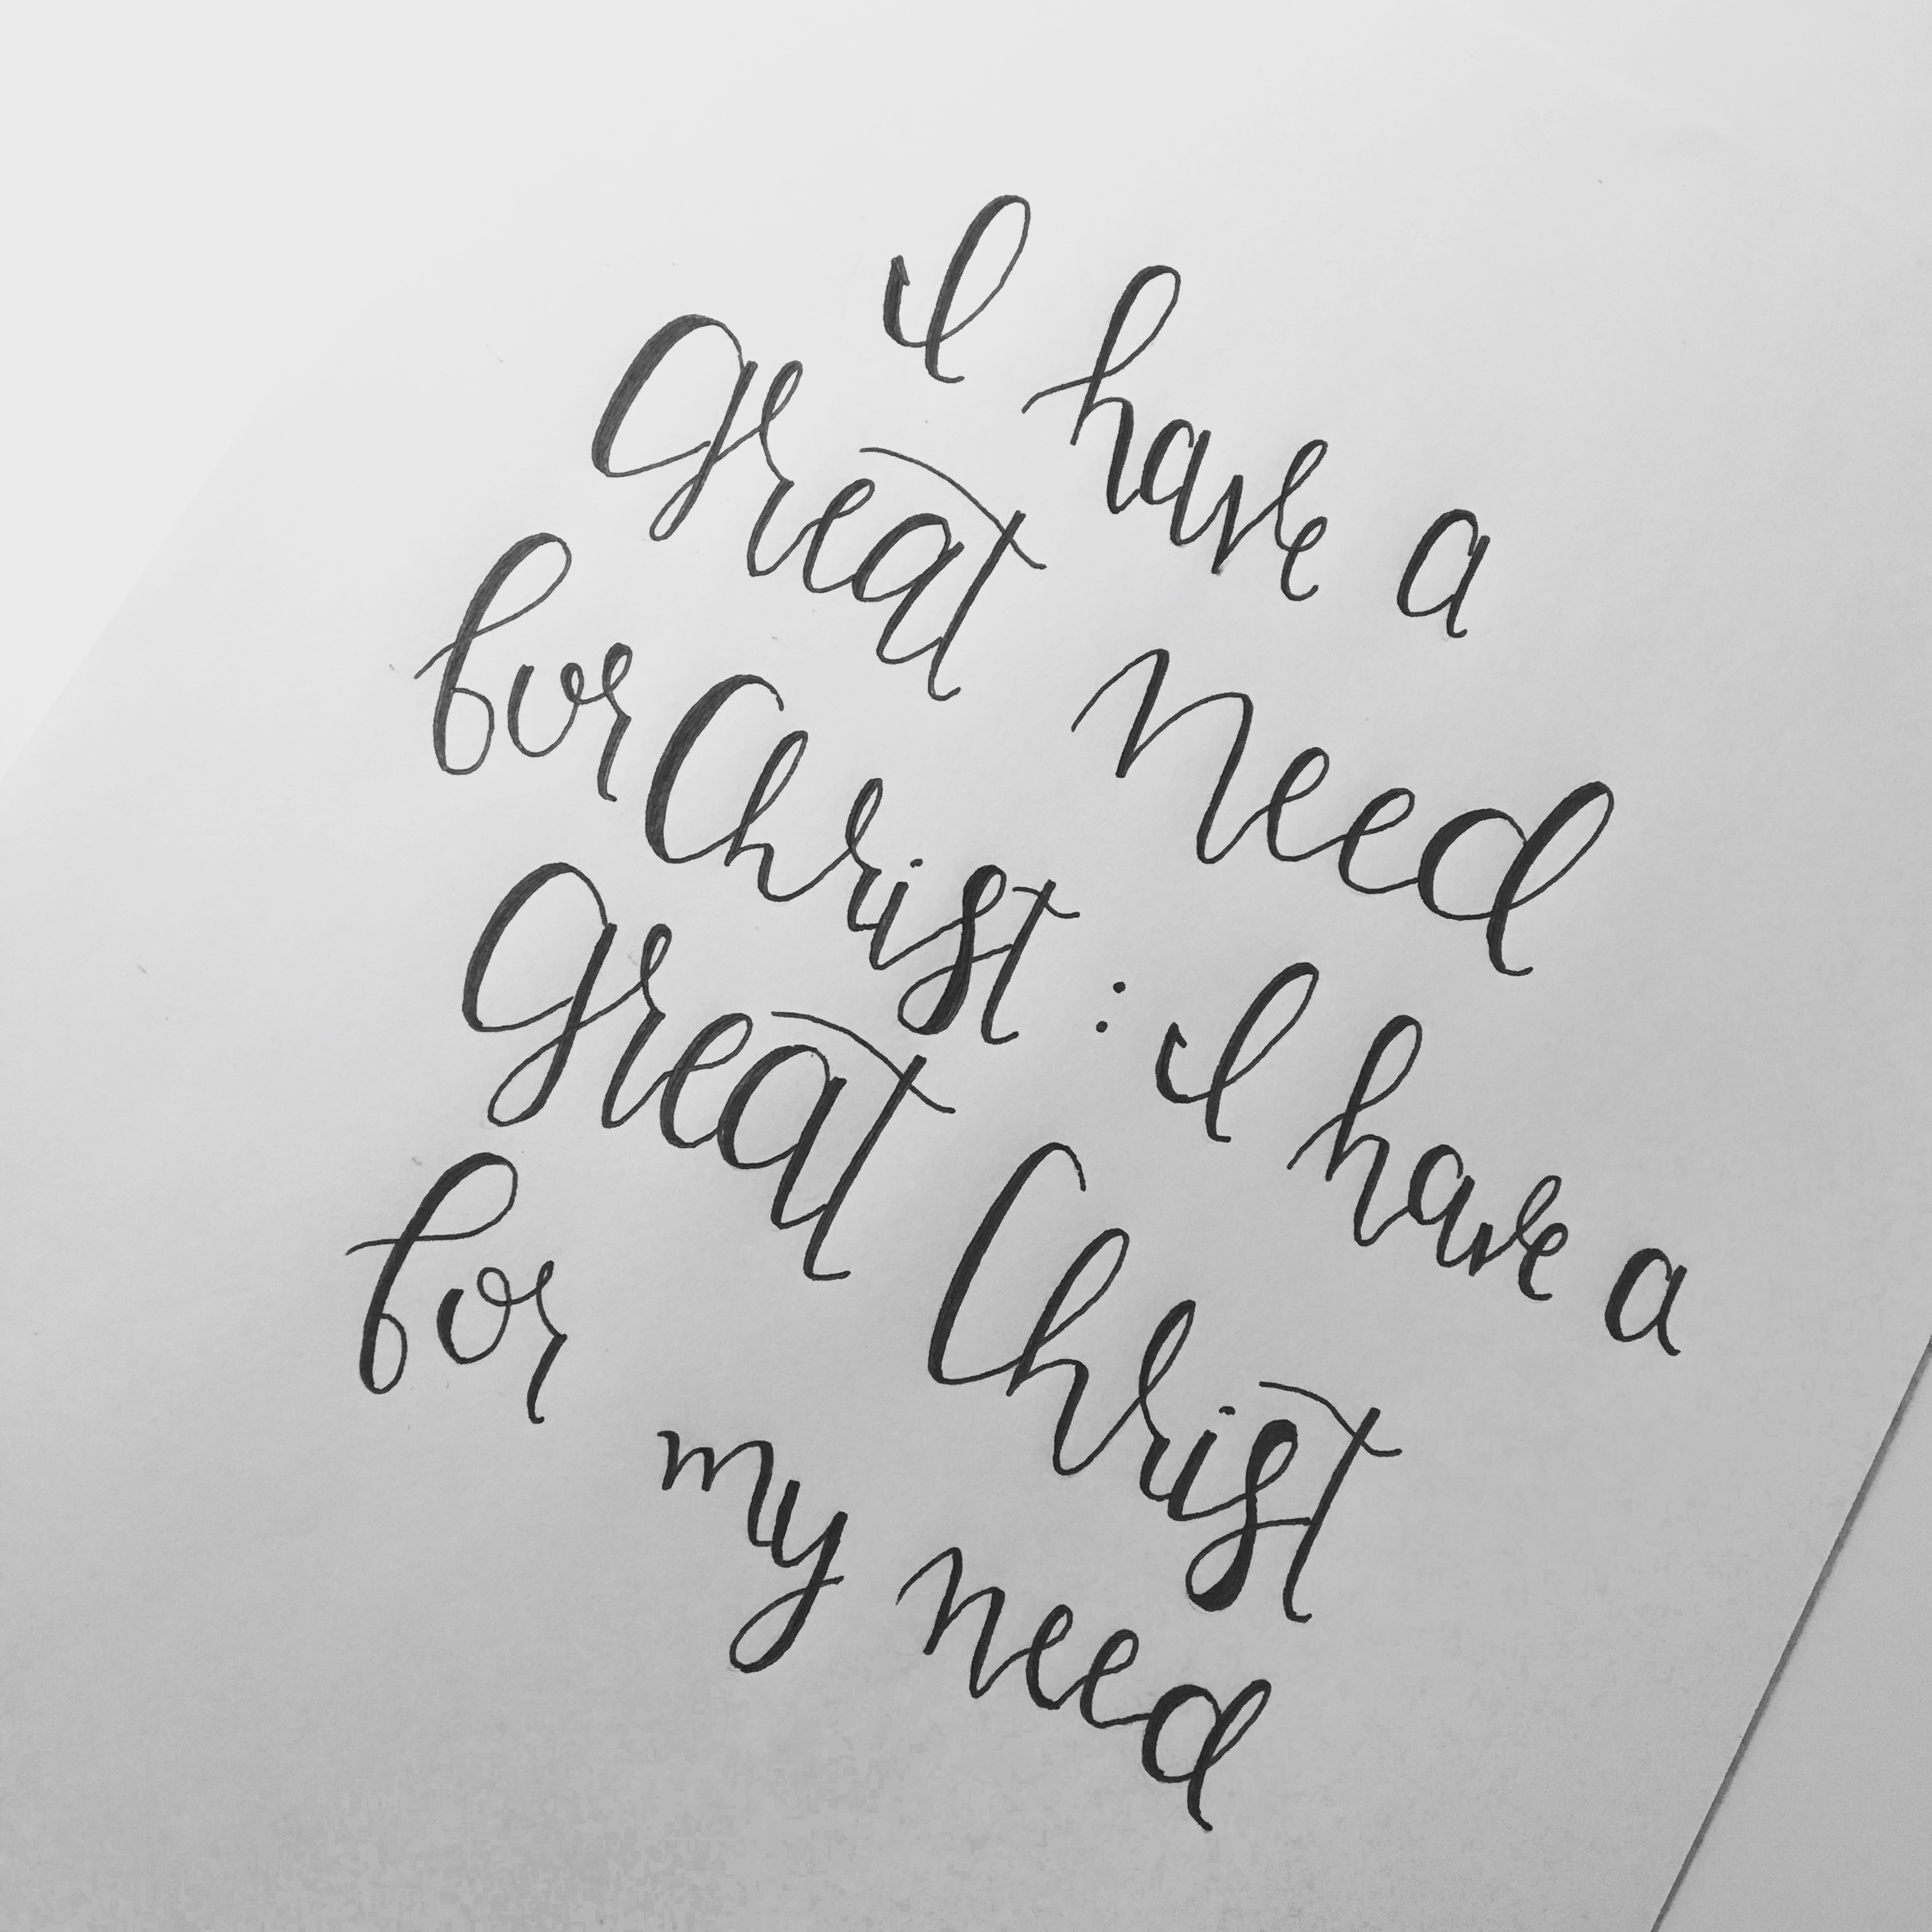 I have a
great need
for Christ: I have a
great Christ
for my need